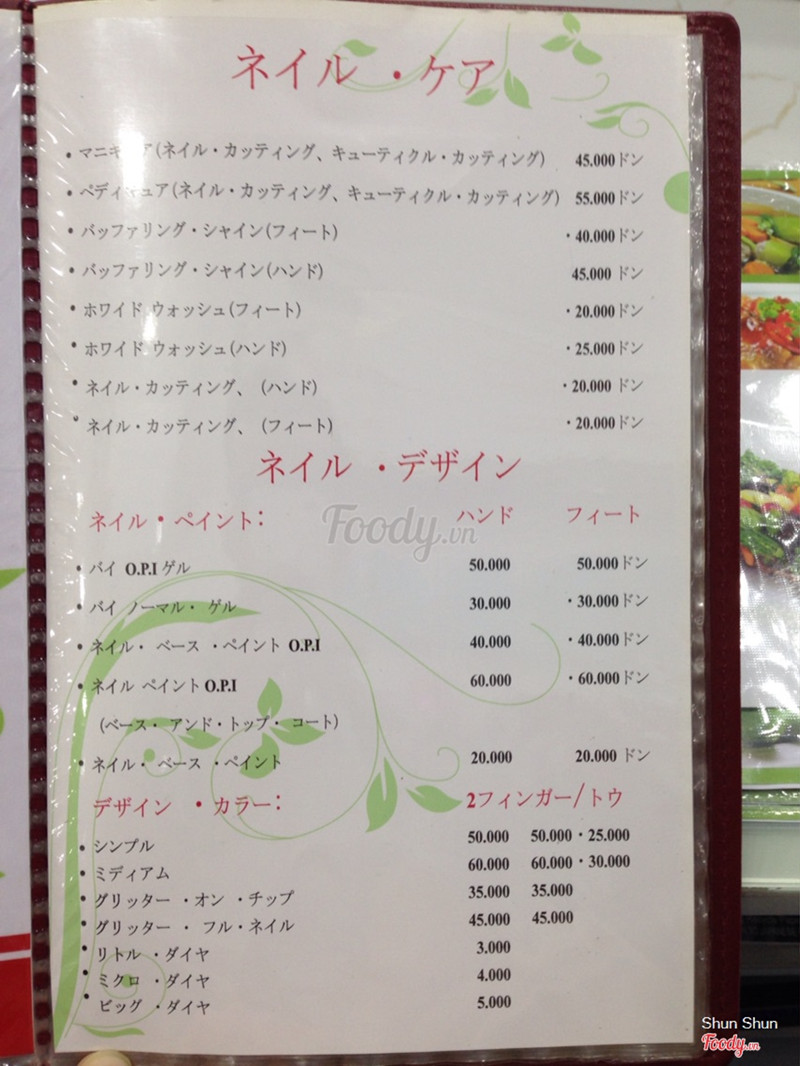 ネイル ・ケア
・マニキ ア(ネイル・カッティング、キューティクル・カッティング) 45.000ドン
・ペディキュア(ネイル・カッティング、キューティクル・カッティング) 55.000ドン
・バッファリング・シャイン(フィート) ・40.000ドン
・バッファリング・シャイン(ハンド) 45.000 ドン
・ホワイド ウォッシュ(フィート) ・20.000ドン
・ホワイド ウォッシュ(ハンド) ・25.000ドン
・ネイル・カッティング、 (ハンド) ・20.000 ドン
・ネイル・カッティング、 (フィート) ・20.000ドン
ネイル ・デザイン
ネイル・ペイント: ハンド フィート
・バイ O.P.I ゲル 50.000 50.000ドン
・バイ ノーマル・ ゲル 30.000 ・30.000ドン
・ネイル・ ベース ・ペイント O.P.I 40.000 ・40.000ドン
・ネイル ペイント O.P.I 60.000 ・60.000ドン
(ベース・ アンド・トップ・ コート)
・ネイル・ ベース ・ペイント 20.000 20.000 ドン
デザイン ・カラー: 2フィンガー/トウ
・シンプル 50.000 50.000・25.000
・ミディアム 60.000 60.000・30.000
・グリッター ・オン ・チップ 35.000 35.000
・グリッター ・ フル・ネイル 45.000 45.000
・リトル ・ダイヤ 3.000
・ミクロ ・ダイヤ 4.000
・ビッグ ・ダイヤ 5.000
Foody.vn
Shun Shun
Foody.vn